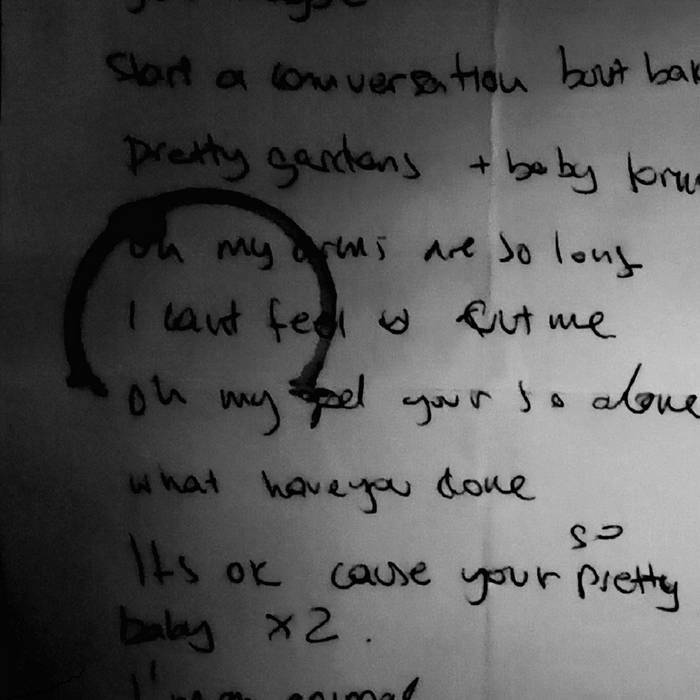 Start a conversation but
pretty gardans + baby
oh my arms are so long
I cant feel so cut me
oh my your so alone
what have you done
Its ok cause your so pretty
baby x2.
I'm an animal